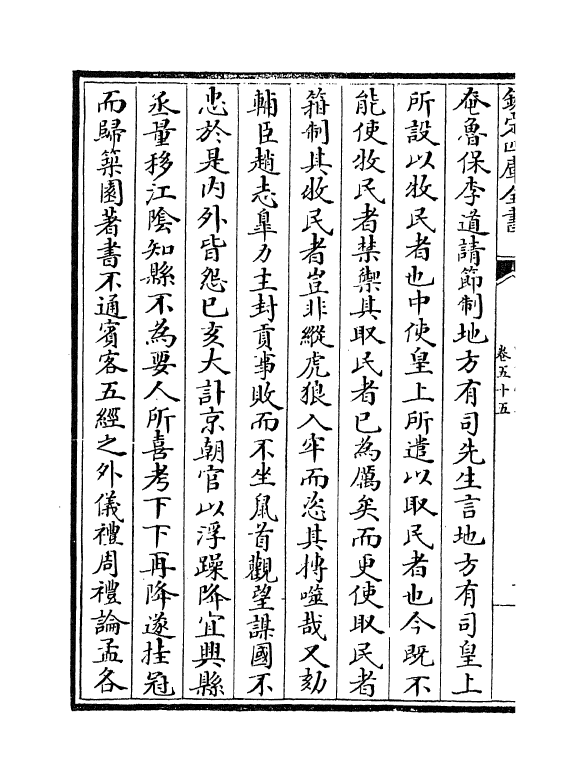 欽定四庫全書
卷五十五
奄魯保李道請節制地方有司先生言地方有司皇上
所設以牧民者也中使皇上所遣以取民者也今既不
能使牧民者禁禦其取民者已為厲矣而更使取民者
箝制其牧民者豈非縱虎狼入牢而恣其摶噬哉又劾
輔臣趙志臯力主封貢事敗而不坐鼠首觀望謀國不
忠於是内外皆怨已亥大計京朝官以浮躁降宜興縣
丞量移江陰知縣不為要人所喜考下下再降遂挂冠
而歸築園著書不通賓客五經之外儀禮周禮論孟各